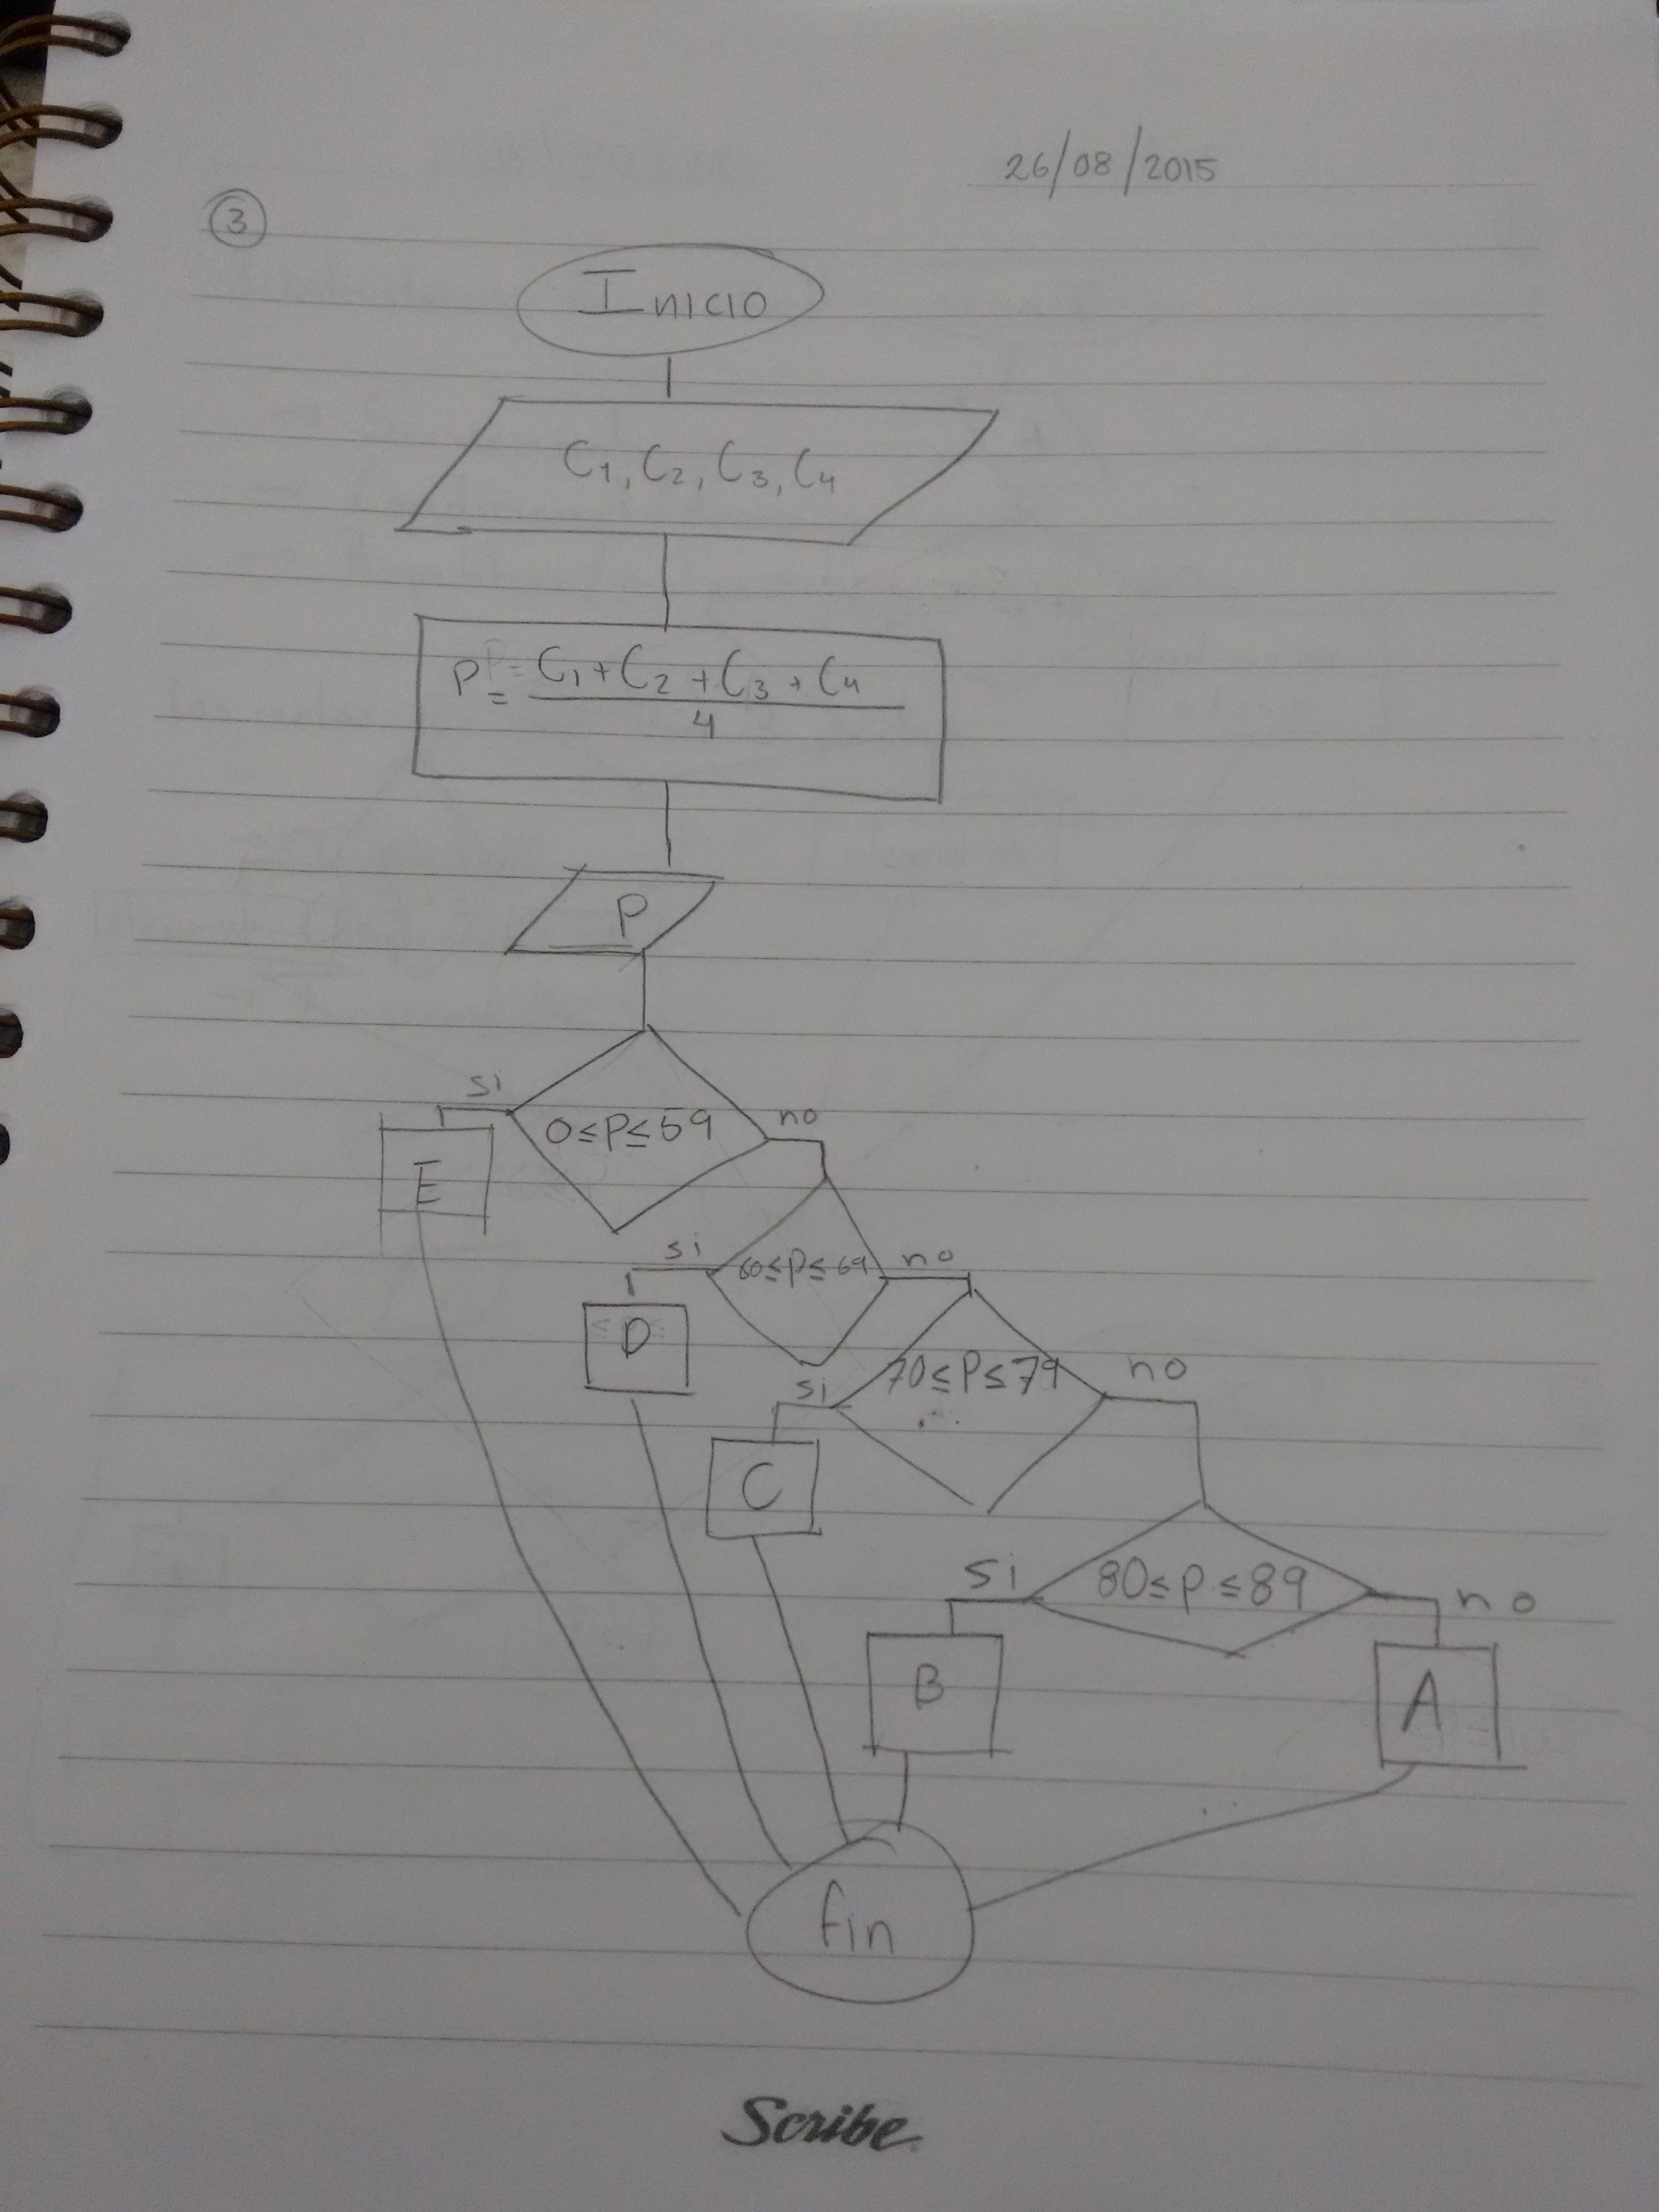 26/08/2015
3
Inicio
C1, C2, C3, C4
P = C1 + C2 + C3 + C4
4
P
si
0≤P≤59
no
E
si
60≤P≤69
no
D
70≤P≤79
no
si
C
si
80≤P≤89
no
B
A
fin
Scribe